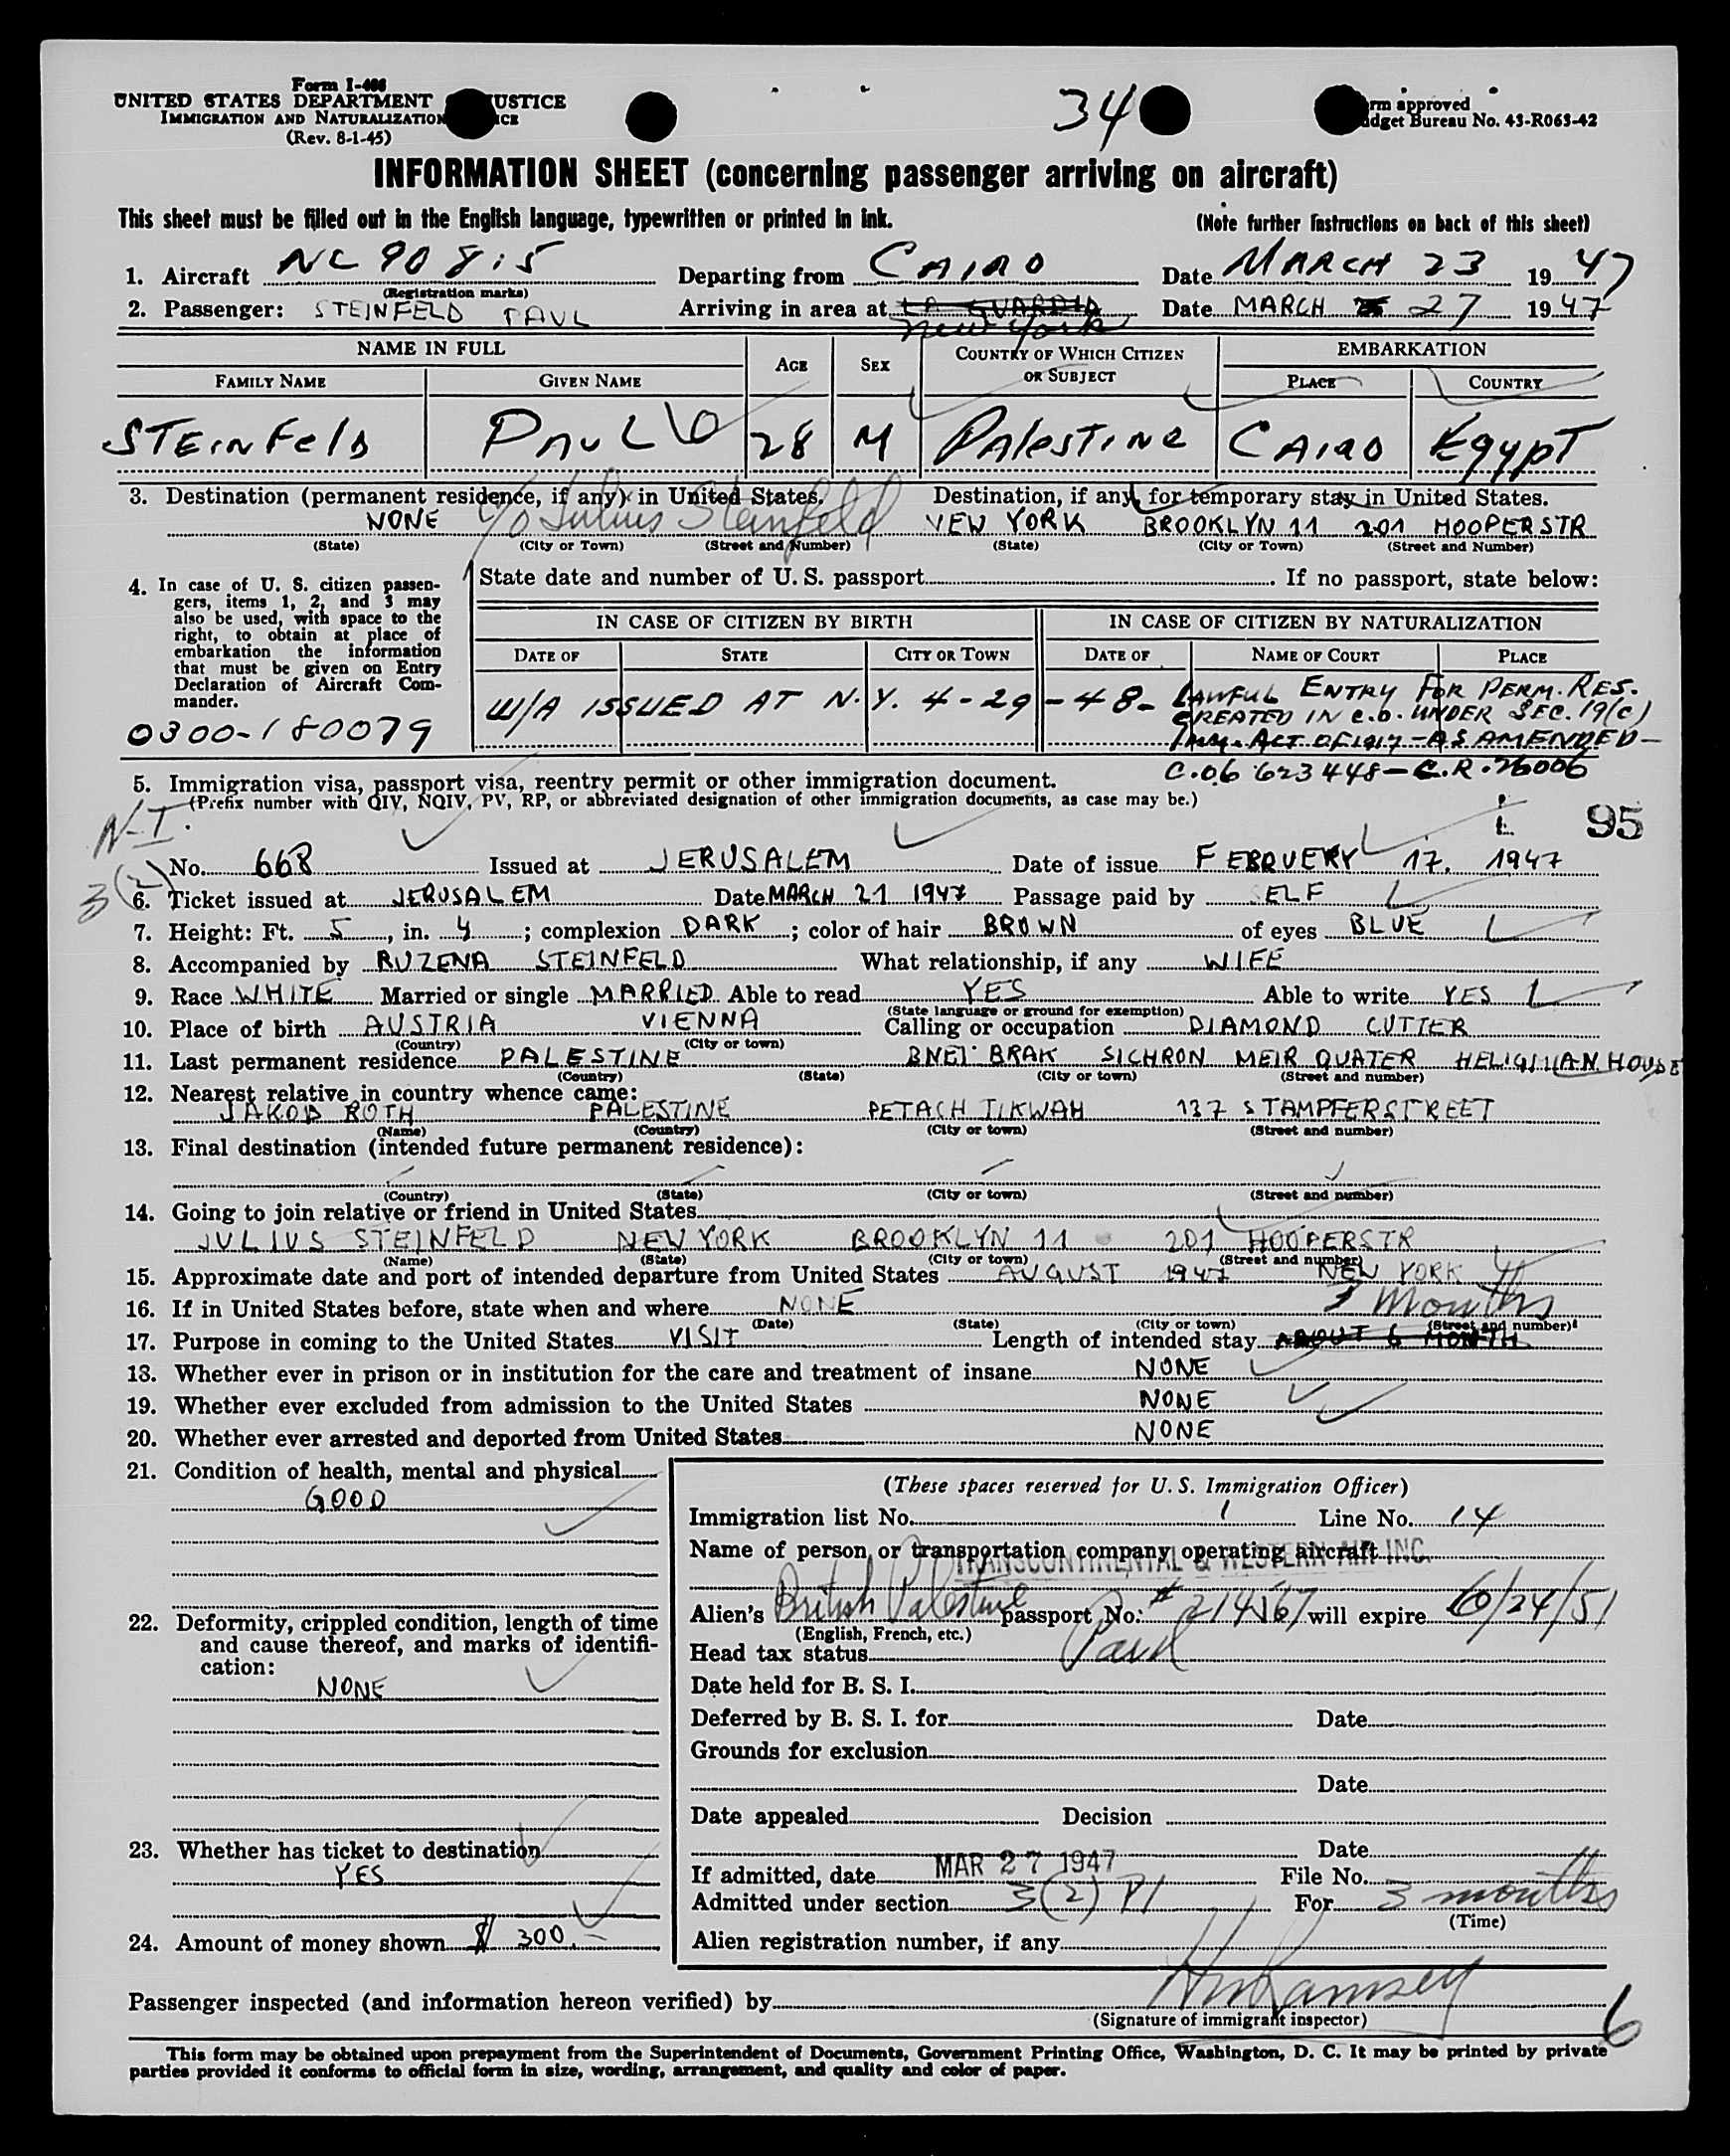 Form I-466
UNITED STATES DEPARTMENT USTICE
IMMIGRATION AND NATURALIZATION ICE
(Rev. 8-1-45)
34
rm approved
dget Bureau No. 43-R063-42
INFORMATION SHEET (concerning passenger arriving on aircraft)
This sheet must be filled out in the English language, typewritten or printed in ink. (Note further instructions on back of this sheet)
1. Aircraft NC 90815 Departing from CAIRO Date MARCH 23 19 47
(Registration marks)
2. Passenger: STEINFELD PAUL Arriving in area at LA GUARDIA Date MARCH 27 19 47
New York
NAME IN FULL AGE SEX COUNTRY OF WHICH CITIZEN OR SUBJECT EMBARKATION
FAMILY NAME GIVEN NAME PLACE COUNTRY
STEINFELD PAUL 28 M PALESTINE CAIRO EGYPT
3. Destination (permanent residence, if any) in United States. Destination, if any, for temporary stay in United States.
NONE c/o Julius Steinfeld NEW YORK BROOKLYN 11 201 HOOPERSTR
(State) (City or Town) (Street and Number) (State) (City or Town) (Street and Number)
4. In case of U. S. citizen passengers, items 1, 2, and 3 may also be used, with space to the right, to obtain at place of embarkation the information that must be given on Entry Declaration of Aircraft Commander.
State date and number of U. S. passport. If no passport, state below:
IN CASE OF CITIZEN BY BIRTH IN CASE OF CITIZEN BY NATURALIZATION
DATE OF STATE CITY OR TOWN DATE OF NAME OF COURT PLACE
W/A ISSUED AT N.Y. 4-29-48- LAWFUL ENTRY FOR PERM. RES.
CREATED IN C.O. UNDER SEC. 19(c)
IMM. ACT OF 1917-AS AMENDED-
0300-180079
C.O6 623448-C.R.26006
5. Immigration visa, passport visa, reentry permit or other immigration document.
(Prefix number with QIV, NQIV, PV, RP, or abbreviated designation of other immigration documents, as case may be.)
N-I. 95
No. 668 Issued at JERUSALEM Date of issue FEBRUERY 17. 1947
3(2)
6. Ticket issued at JERUSALEM Date MARCH 21 1947 Passage paid by SELF
7. Height: Ft. 5, in. 4; complexion DARK; color of hair BROWN of eyes BLUE
8. Accompanied by RUZENA STEINFELD What relationship, if any WIFE
9. Race WHITE Married or single MARRIED Able to read YES Able to write YES
(State language or ground for exemption)
10. Place of birth AUSTRIA VIENNA Calling or occupation DIAMOND CUTTER
(Country) (City or town)
11. Last permanent residence PALESTINE BNEI BRAK SICHRON MEIR QUATER HOUSE
(Country) (State) (City or town) (Street and number)
12. Nearest relative in country whence came:
JAKOB ROTH PALESTINE PETACH TIKWAH 137 STAMPFERSTREET
(Name) (Country) (City or town) (Street and number)
13. Final destination (intended future permanent residence):
(Country) (State) (City or town) (Street and number)
14. Going to join relative or friend in United States
JULIUS STEINFELD NEW YORK BROOKLYN 11 201 HOOPERSTR
(Name) (State) (City or town) (Street and number)
15. Approximate date and port of intended departure from United States AUGUST 1947 NEW YORK
16. If in United States before, state when and where NONE
3 Months
(Date) (State) (City or town) (Street and number)
17. Purpose in coming to the United States VISIT Length of intended stay ABOUT 6 MONTH
18. Whether ever in prison or in institution for the care and treatment of insane NONE
19. Whether ever excluded from admission to the United States NONE
20. Whether ever arrested and deported from United States NONE
21. Condition of health, mental and physical
GOOD
22. Deformity, crippled condition, length of time and cause thereof, and marks of identification:
NONE
23. Whether has ticket to destination
YES
24. Amount of money shown $ 300.-
(These spaces reserved for U. S. Immigration Officer)
Immigration list No. 1 Line No. 14
Name of person or transportation company operating aircraft
TRANSCONTINENTAL & WESTERN AIR INC.
Alien's British Palestine passport No. # 214567 will expire 10/24/51
(English, French, etc.)
Head tax status Paid
Date held for B. S. I.
Deferred by B. S. I. for Date
Grounds for exclusion
Date
Date appealed Decision
Date
If admitted, date MAR 27 1947 File No.
Admitted under section 3(2) P1 For 3 months
(Time)
Alien registration number, if any
Passenger inspected (and information hereon verified) by Ramsey
(Signature of immigrant inspector)
6
This form may be obtained upon prepayment from the Superintendent of Documents, Government Printing Office, Washington, D. C. It may be printed by private
parties provided it conforms to official form in size, wording, arrangement, and quality and color of paper.